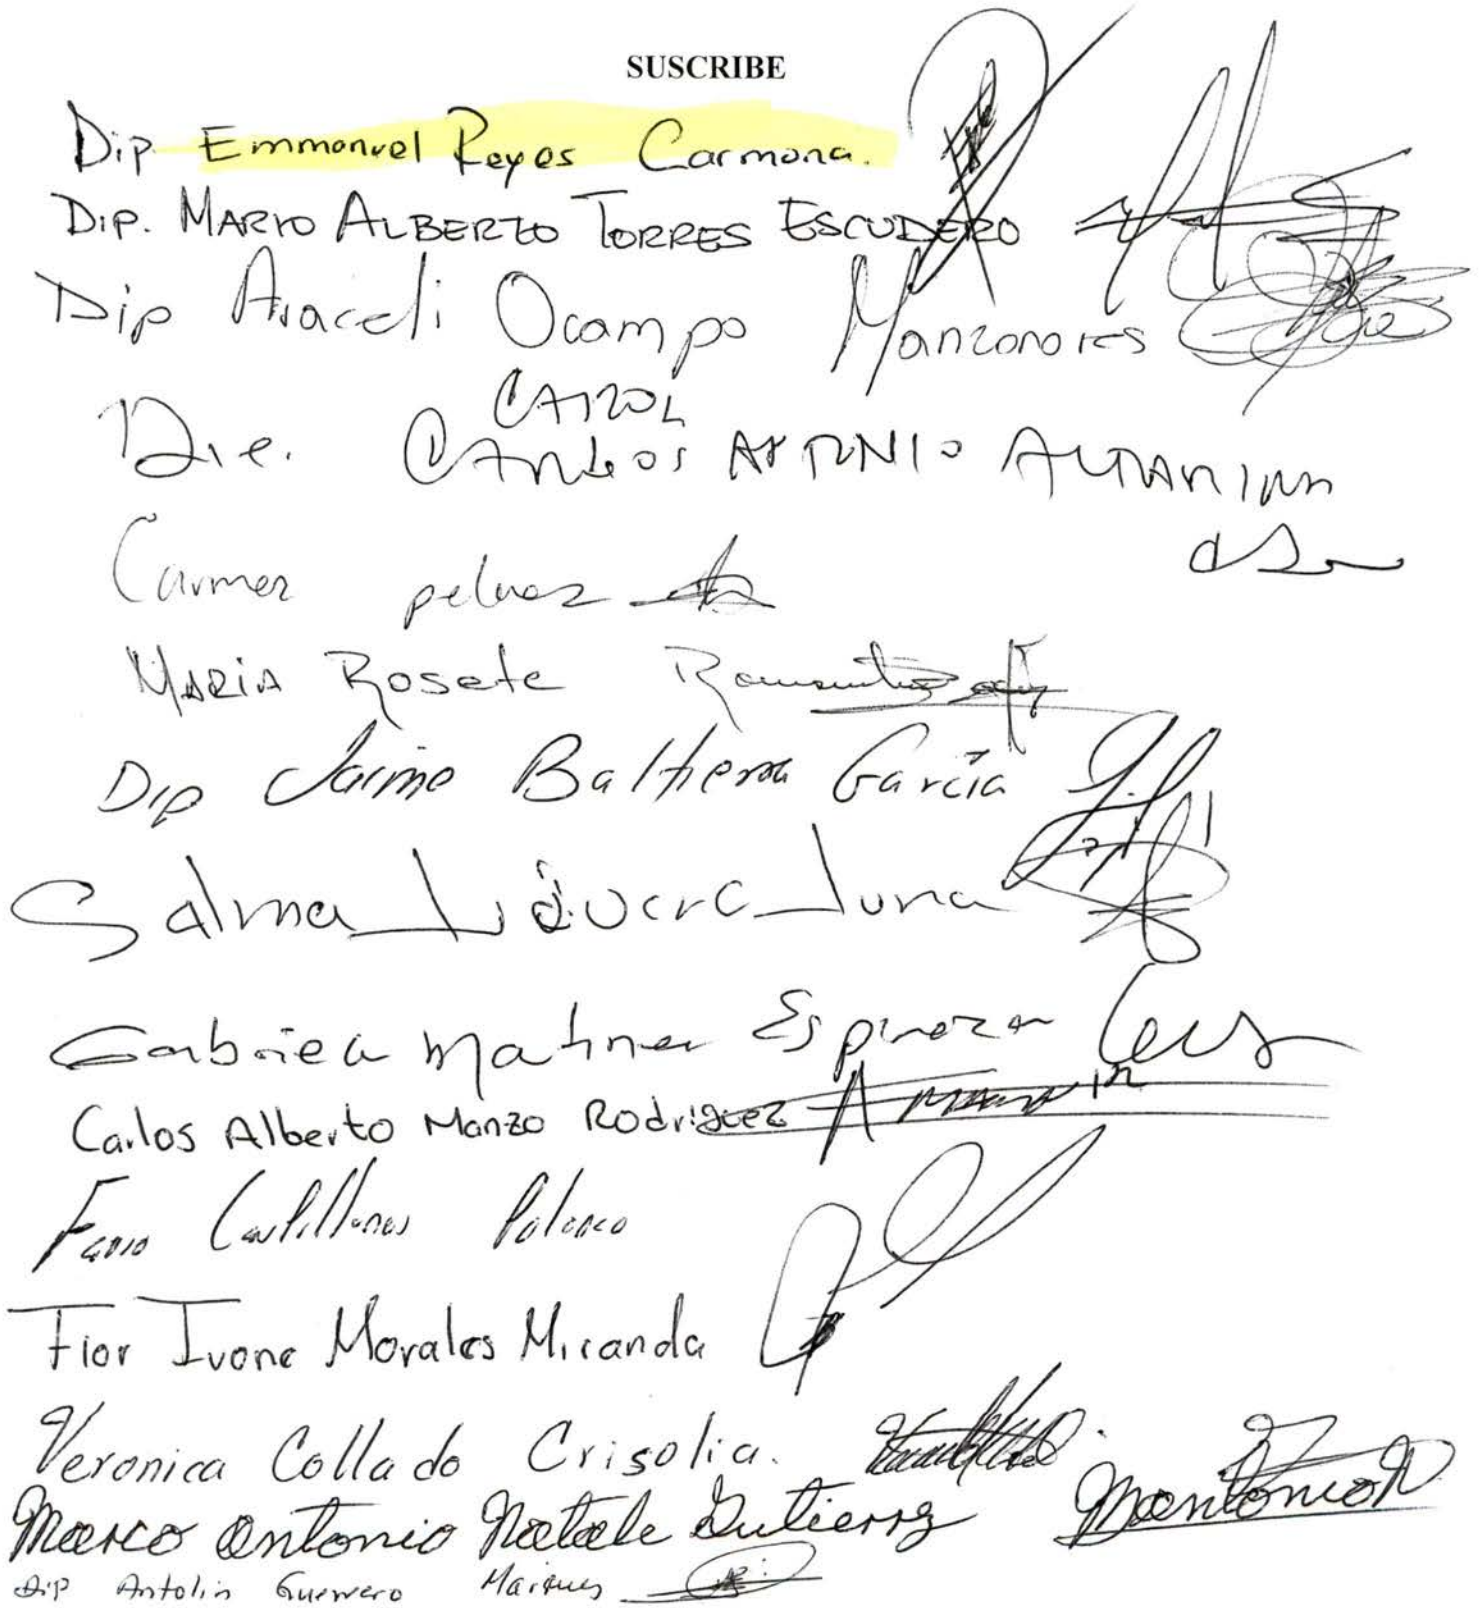 SUSCRIBE
Dip Emmanuel Reyes Carmona.
Dip. MARIO ALBERTO TORRES ESCUDERO
Dip Araceli Ocampo Manzanares
CAROL
Dip. CARLOS ANTONIO ALTAMIRANO
Carmen pelaez
MARIA Rosete
Dip Jaime Baltierra García
Salma Luévano Luna
Gabriea Matinez Espinoza
Carlos Alberto Manzo Rodriguez
Favio Castellanos Polanco
Flor Ivone Morales Miranda
Veronica Collado Crisolia.
Marco antonio Natale Gutierrez
Dip Antolin Guerrero Marquez